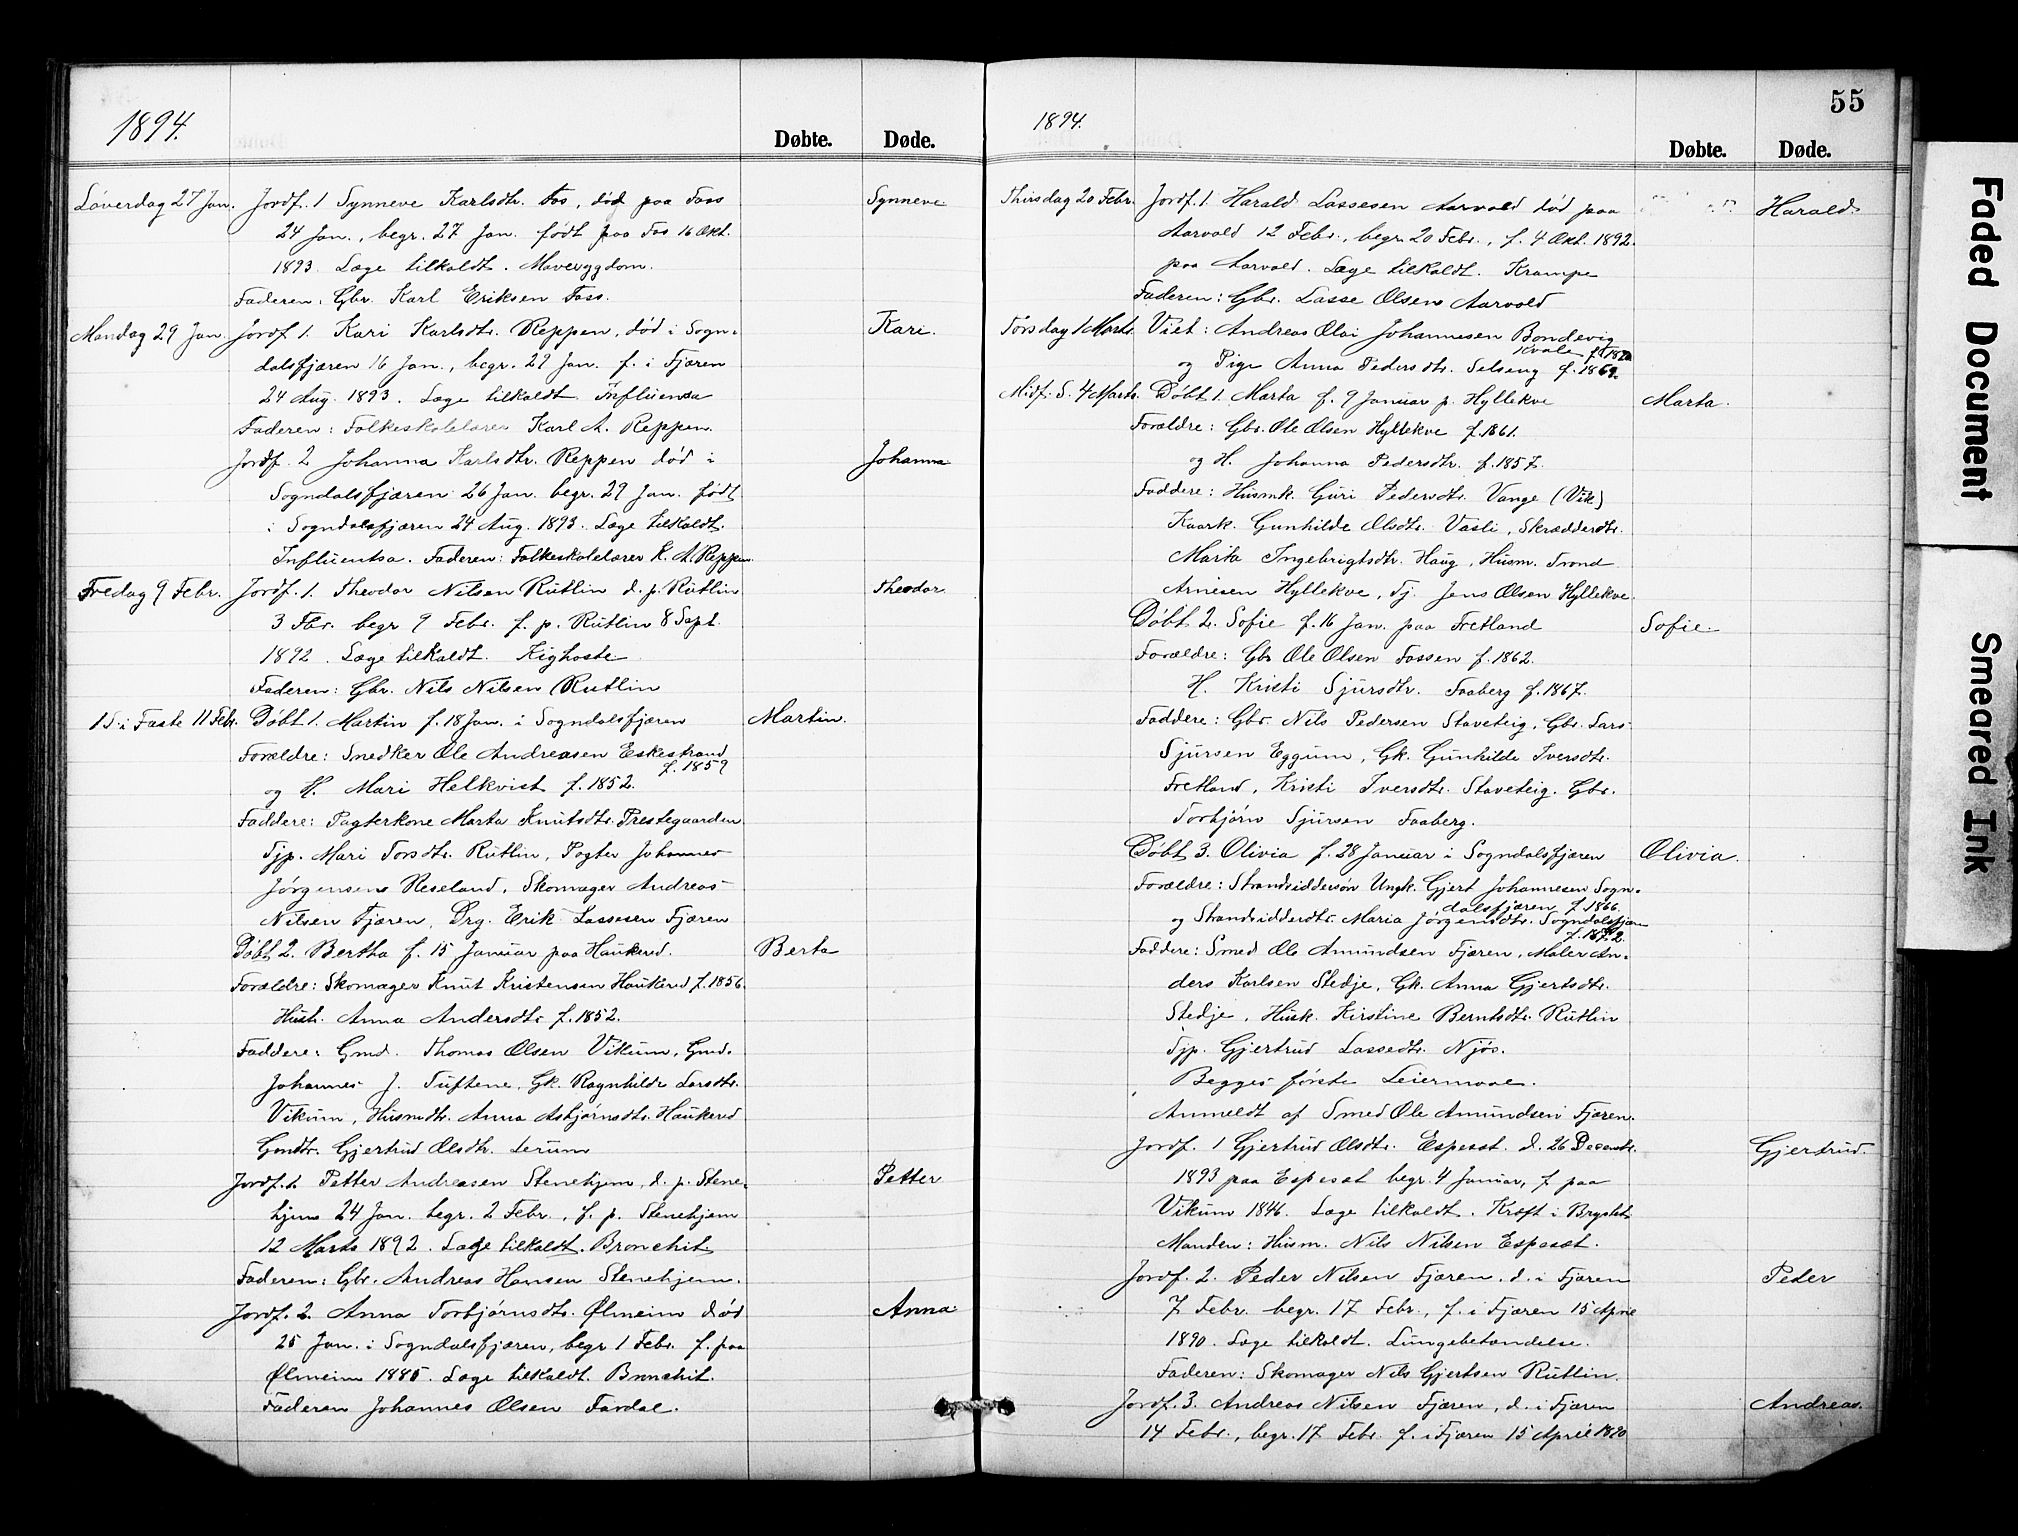 1894.
Døbte. Døde.
Löverdag 27 Jan. Jordf. 1 Synneve Karlsdtr. Fos, död paa Foss Synneve
24 Jan., begr. 27 Jan. født paa Fos 16 Okt.
1893. Læge tilkaldt. Mavesygdom.
Faderen: Gbr. Karl Eriksen Foss.
Mandag 29 Jan. Jordf. 1. Kari Karlsdtr. Reppen, död i Sogn- Kari.
dalsfjæren 16 Jan., begr. 29 Jan. f. i Fjæren
24 Aug. 1893. Læge tilkaldt. Influensa
Faderen: Folkeskolelærer Karl A. Reppen.
Jordf. 2 Johanna Karlsdtr. Reppen död i Johanna
Sogndalsfjæren 26 Jan. begr. 29 Jan. født
i Sogndalsfjæren 24 Aug. 1893. Læge tilkaldt.
Influentsa. Faderen: Folkeskolelærer K. A. Reppen
Fredag 9 Febr. Jordf. 1. Theodor Nilsen Rutlin d. p. Rutlin Theodor
3 Fbr. begr 9 Febr. f. p. Rutlin 8 Sept.
1892. Læge tilkaldt. Kighoste
Faderen: Gbr. Nils Nilsen Rutlin
1 S. i Faste 11 Feb. Döbt 1. Martin f. 18 Jan. i Sogndalsfjæren Martin.
Forældre: Snedker Ole Andreasen Eskestrand
f. 1859
og H. Mari Helkvist f. 1852.
Faddere: Pagterkone Marta Knutsdtr. Prestegaarden
Tjp. Mari Torsdtr. Rutlin, Pagter Johannes
Jörgensens Reseland, Skomager Andreas
Nilsen Fjæren, Drg. Erik Lassesen Fjæren
Döbt 2. Bertha f. 15 Januar paa Haukerud. Berta
Forældre: Skomager Knut Kristensen Haukerud f. 1856.
Hust. Anna Andersdtr f. 1852.
Faddere: Gmd. Thomas Olsen Vikum, Gmd.
Johannes J. Tuftene, Gk. Ragnhilde Larsdtr.
Vikum, Husmdtr. Anna Asbjörnsdtr. Haukerud
Gmdtr. Gjertrud Olsdtr. Lerum
Jordf. 1. Petter Andreasen Stenehjem, d. p. Stene- Petter
hjem 24 Jan. begr. 2 Febr., f. p. Stenehjem
12 Marts 1892. Læge tilkaldt. Bronchit
Faderen: Gbr. Andreas Hansen Stenehjem.
Jordf. 2. Anna Torbjörnsdtr. Ølmeim död Anna
25 Jan. i Sogndalsfjæren, begr 1 Febr. f. paa
Ølmeim 1885. Læge tilkaldt. Bronchit.
Faderen Johannes Olsen Fardal.
1894.
55
Døbte. Døde.
Thirsdag 20 Febr. Jordf. 1. Harald Lassesen Aarvold död paa Harald
Aarvold 12 Febr., begr. 20 Febr., f. 4 Okt. 1892.
paa Aarvold. Læge tilkaldt. Krampe
Faderen: Gbr. Lasse Olsen Aarvold
Torsdag 1 Marts. Viet: Andreas Olai Johannesen Bondevig
Kvale
og Pige Anna Pedersdtr. Selseng f. 1869.
Midf. S. 4 Marts. Döbt 1. Marta f. 9 Januar p. Hyllekve Marta.
Forældre: Gbr. Ole Olsen Hyllekve f. 1861.
og H. Johanna Pedersdtr. f. 1857.
Faddere: Husmk. Guri Pedersdtr. Vange (Vik)
Kaark. Gunhilde Olsdtr. Vasli, Skrædderdtr.
Marta Ingebrigtsdtr. Haug, Husm. Trond
Arnesen Hyllekve, Tj. Jens Olsen Hyllekve.
Döbt 2. Sofie f. 16 Jan. paa Fretland Sofie.
Forældre: Gbr Ole Olsen Fossen f. 1862.
H. Kristi Sjursdtr. Faaberg f. 1867.
Faddere: Gbr. Nils Pedersen Staveteig, Gbr. Lars
Sjursen Eggum, Gk. Gunhilde Iversdtr.
Fretland, Kristi Iversdtr. Staveteig. Gbr.
Torbjörn Sjursen Faaberg.
Döbt 3. Olivia f. 28 Januar i Sogndalsfjæren Olivia.
Forældre: Strandsiddersön Ungk. Gjert Johannesen Sogn-
dalsfjæren f. 1866.
og Strandsidderdtr. Maria Jörgensdtr. Sogndalsfjæren
f. 1872.
Faddere: Smed Ole Amundsen Fjæren, Maler An-
ders Karlsen Stedje, Gk. Anna Gjertsdtr.
Stedje, Husk. Kirstine Berntsdtr. Rutlin
Tjp. Gjertrud Lassedtr. Njös.
Begges förste Leiermaal.
Anmeldt af Smed Ole Amundsen Fjæren.
Jordf. 1 Gjertrud Olsdtr. Espeset. d. 26 Decembr. Gjertrud.
1893 paa Espeset begr. 4 Januar, f. paa
Vikum 1846. Læge tilkaldt. Kræft i Brystet.
Manden: Husm. Nils Nilsen Espeset.
Jordf. 2. Peder Nilsen Fjæren. d. i Fjæren Peder
7 Febr. begr. 17 Febr., f. i Fjæren 15 April
1890. Læge tilkaldt. Lungebetændelse.
Faderen: Skomager Nils Gjertsen Rutlin.
Jordf. 3. Andreas Nilsen Fjæren, d. i Fjæren Andreas.
14 Febr., begr. 17 Febr. f. i Fjæren 15 April 1890
Faded Document
Smeared Ink